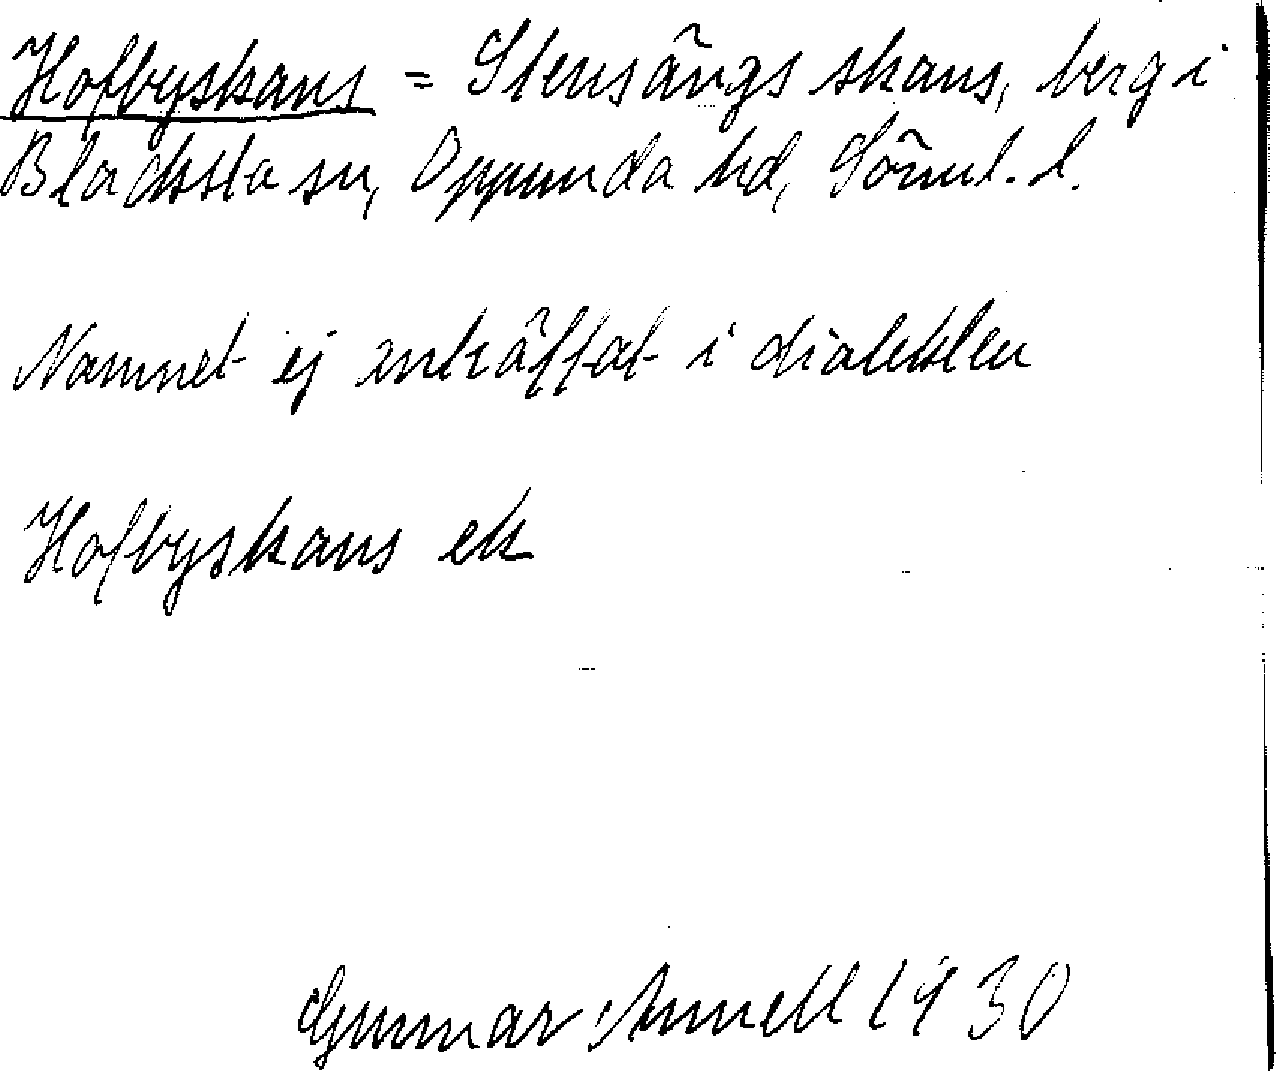 Hofbyskans = Stensängs skans, berg i
Blacksta sn, Oppunda hd, Söml. l.
Namnet ej anträffat i dialekten
Hofbyskans ek
Gunnar Annell 1930